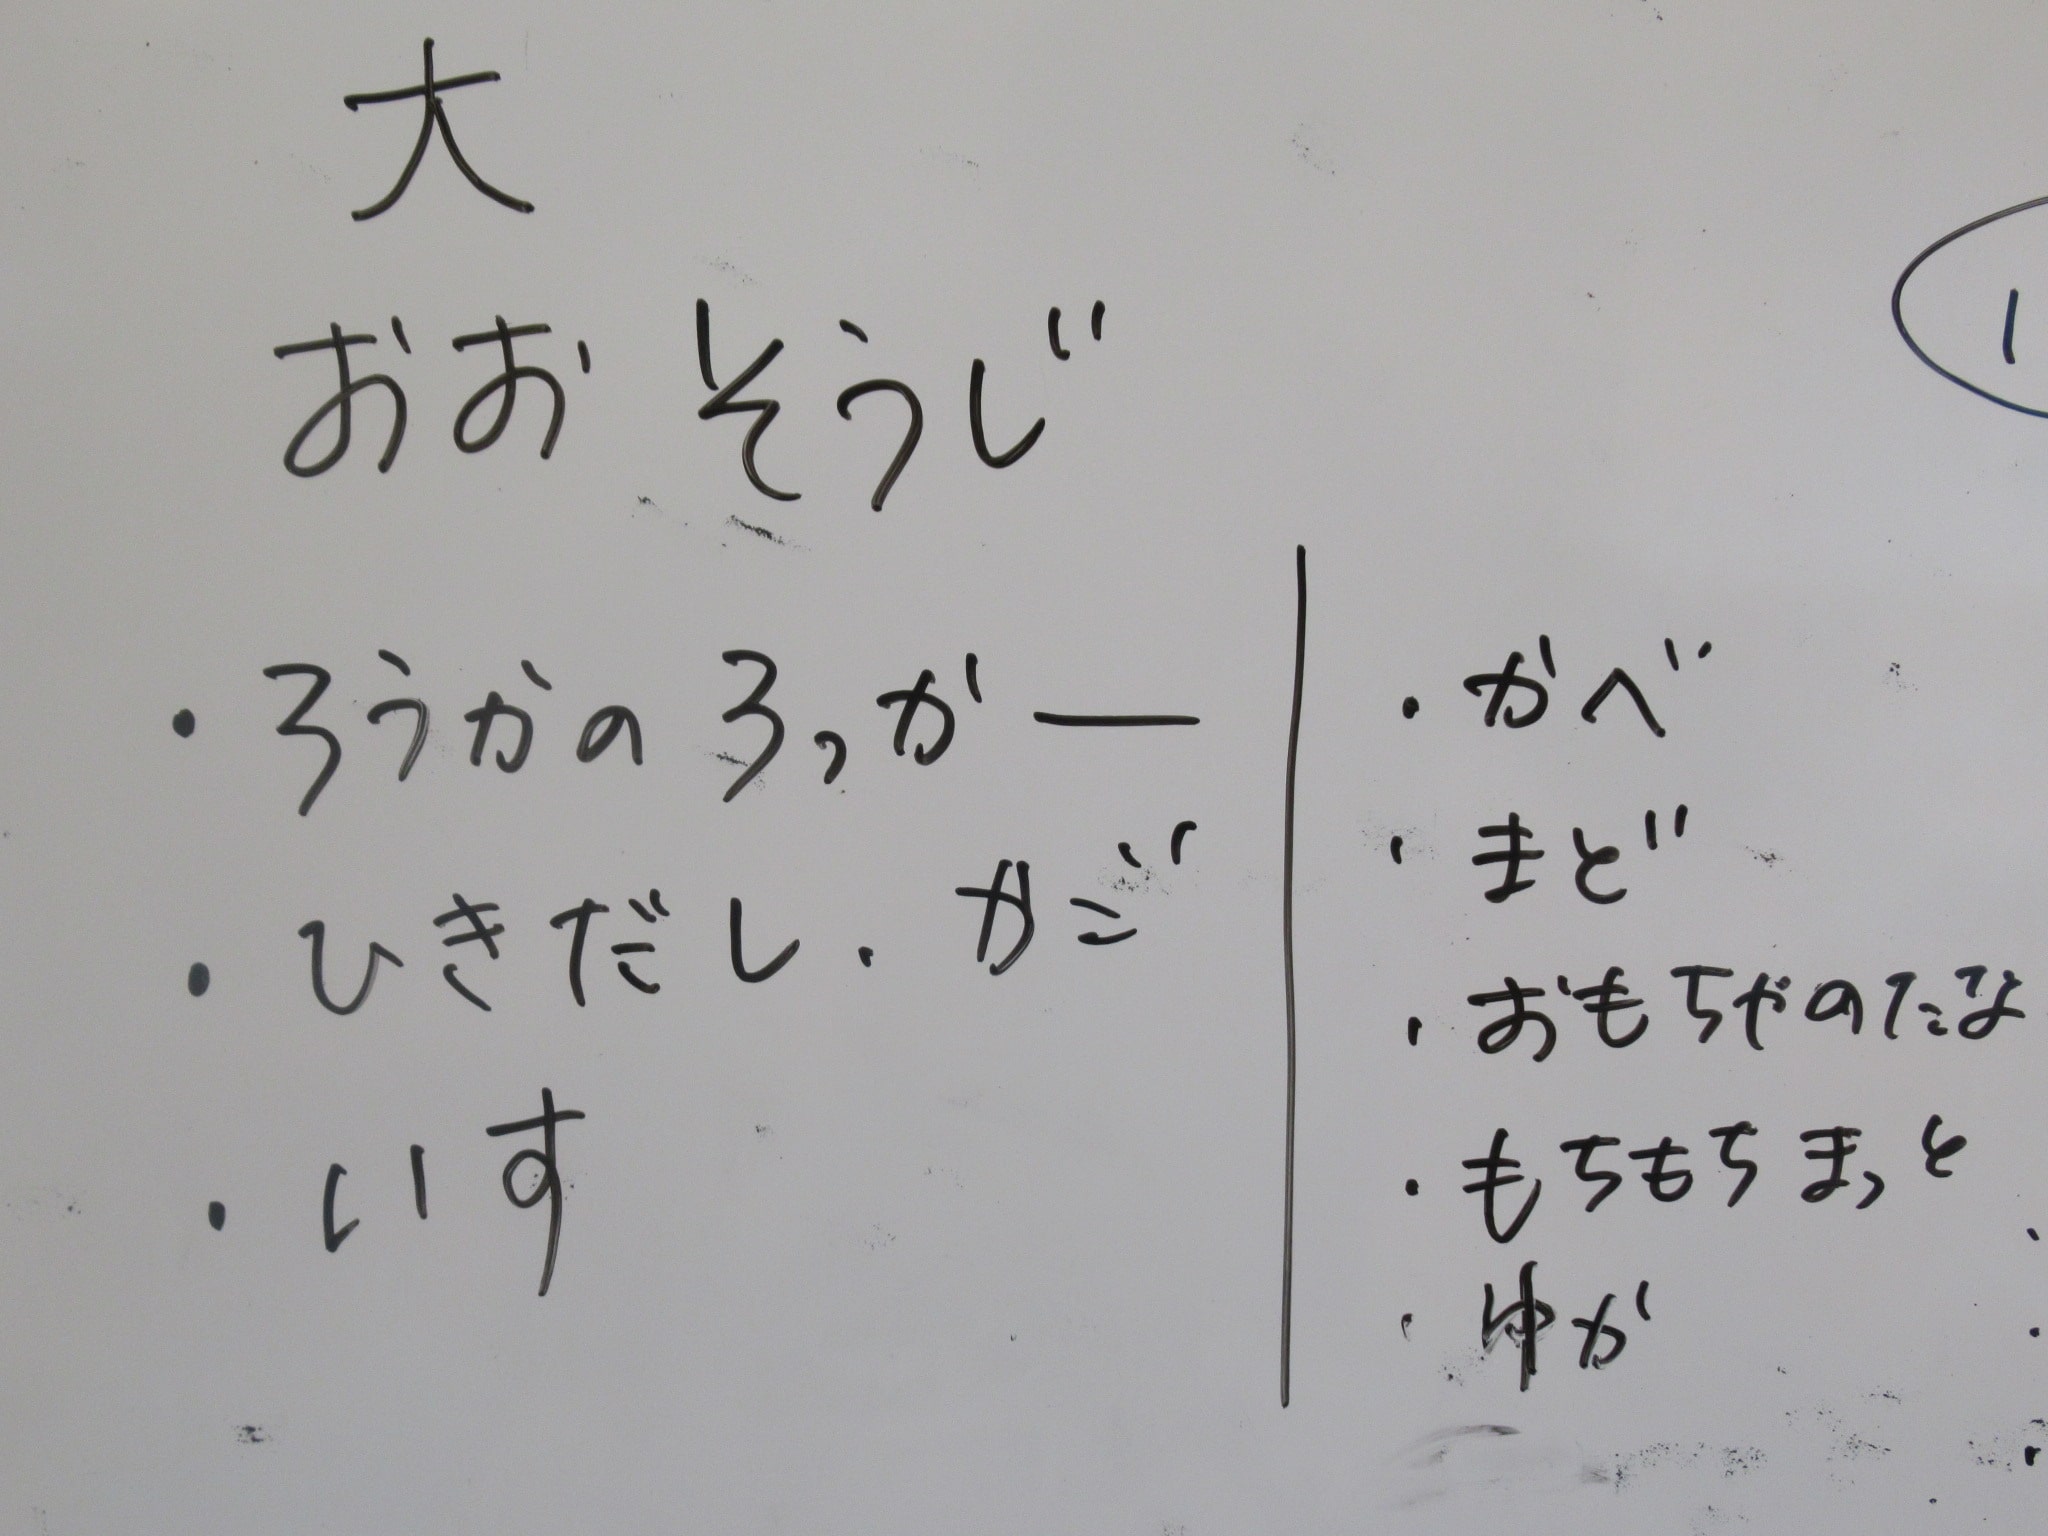 大
おおそうじ
・ろうかのろっがー
・ひきだし・かご
・いす
・かべ
・まど
・おもちゃのたな
・もちもちまっと
・ゆか
1